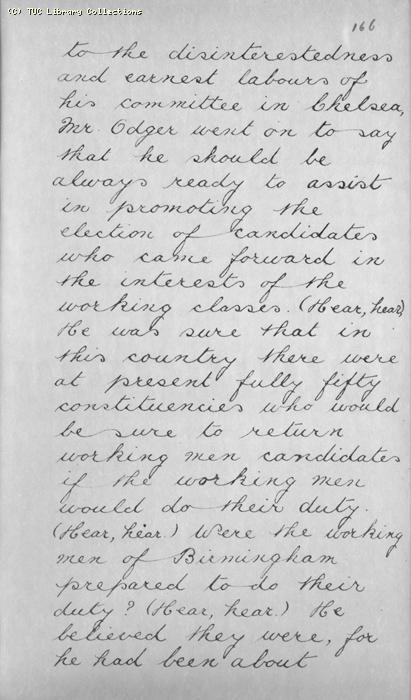 (C) TUC Library Collections
166
to the disinterestedness
and earnest labours of
his committee in Chelsea,
Mr. Odger went on to say
that he should be
always ready to assist
in promoting the
election of candidates
who came forward in
the interests of the
working classes. (Hear, hear)
He was sure that in
this country there were
at present fully fifty
constituencies who would
be sure to return
working men candidates
if the working men
would do their duty.
(Hear, hear.) Were the working
men of Birmingham
prepared to do their
duty? (Hear, hear.) He
believed they were, for
he had been about